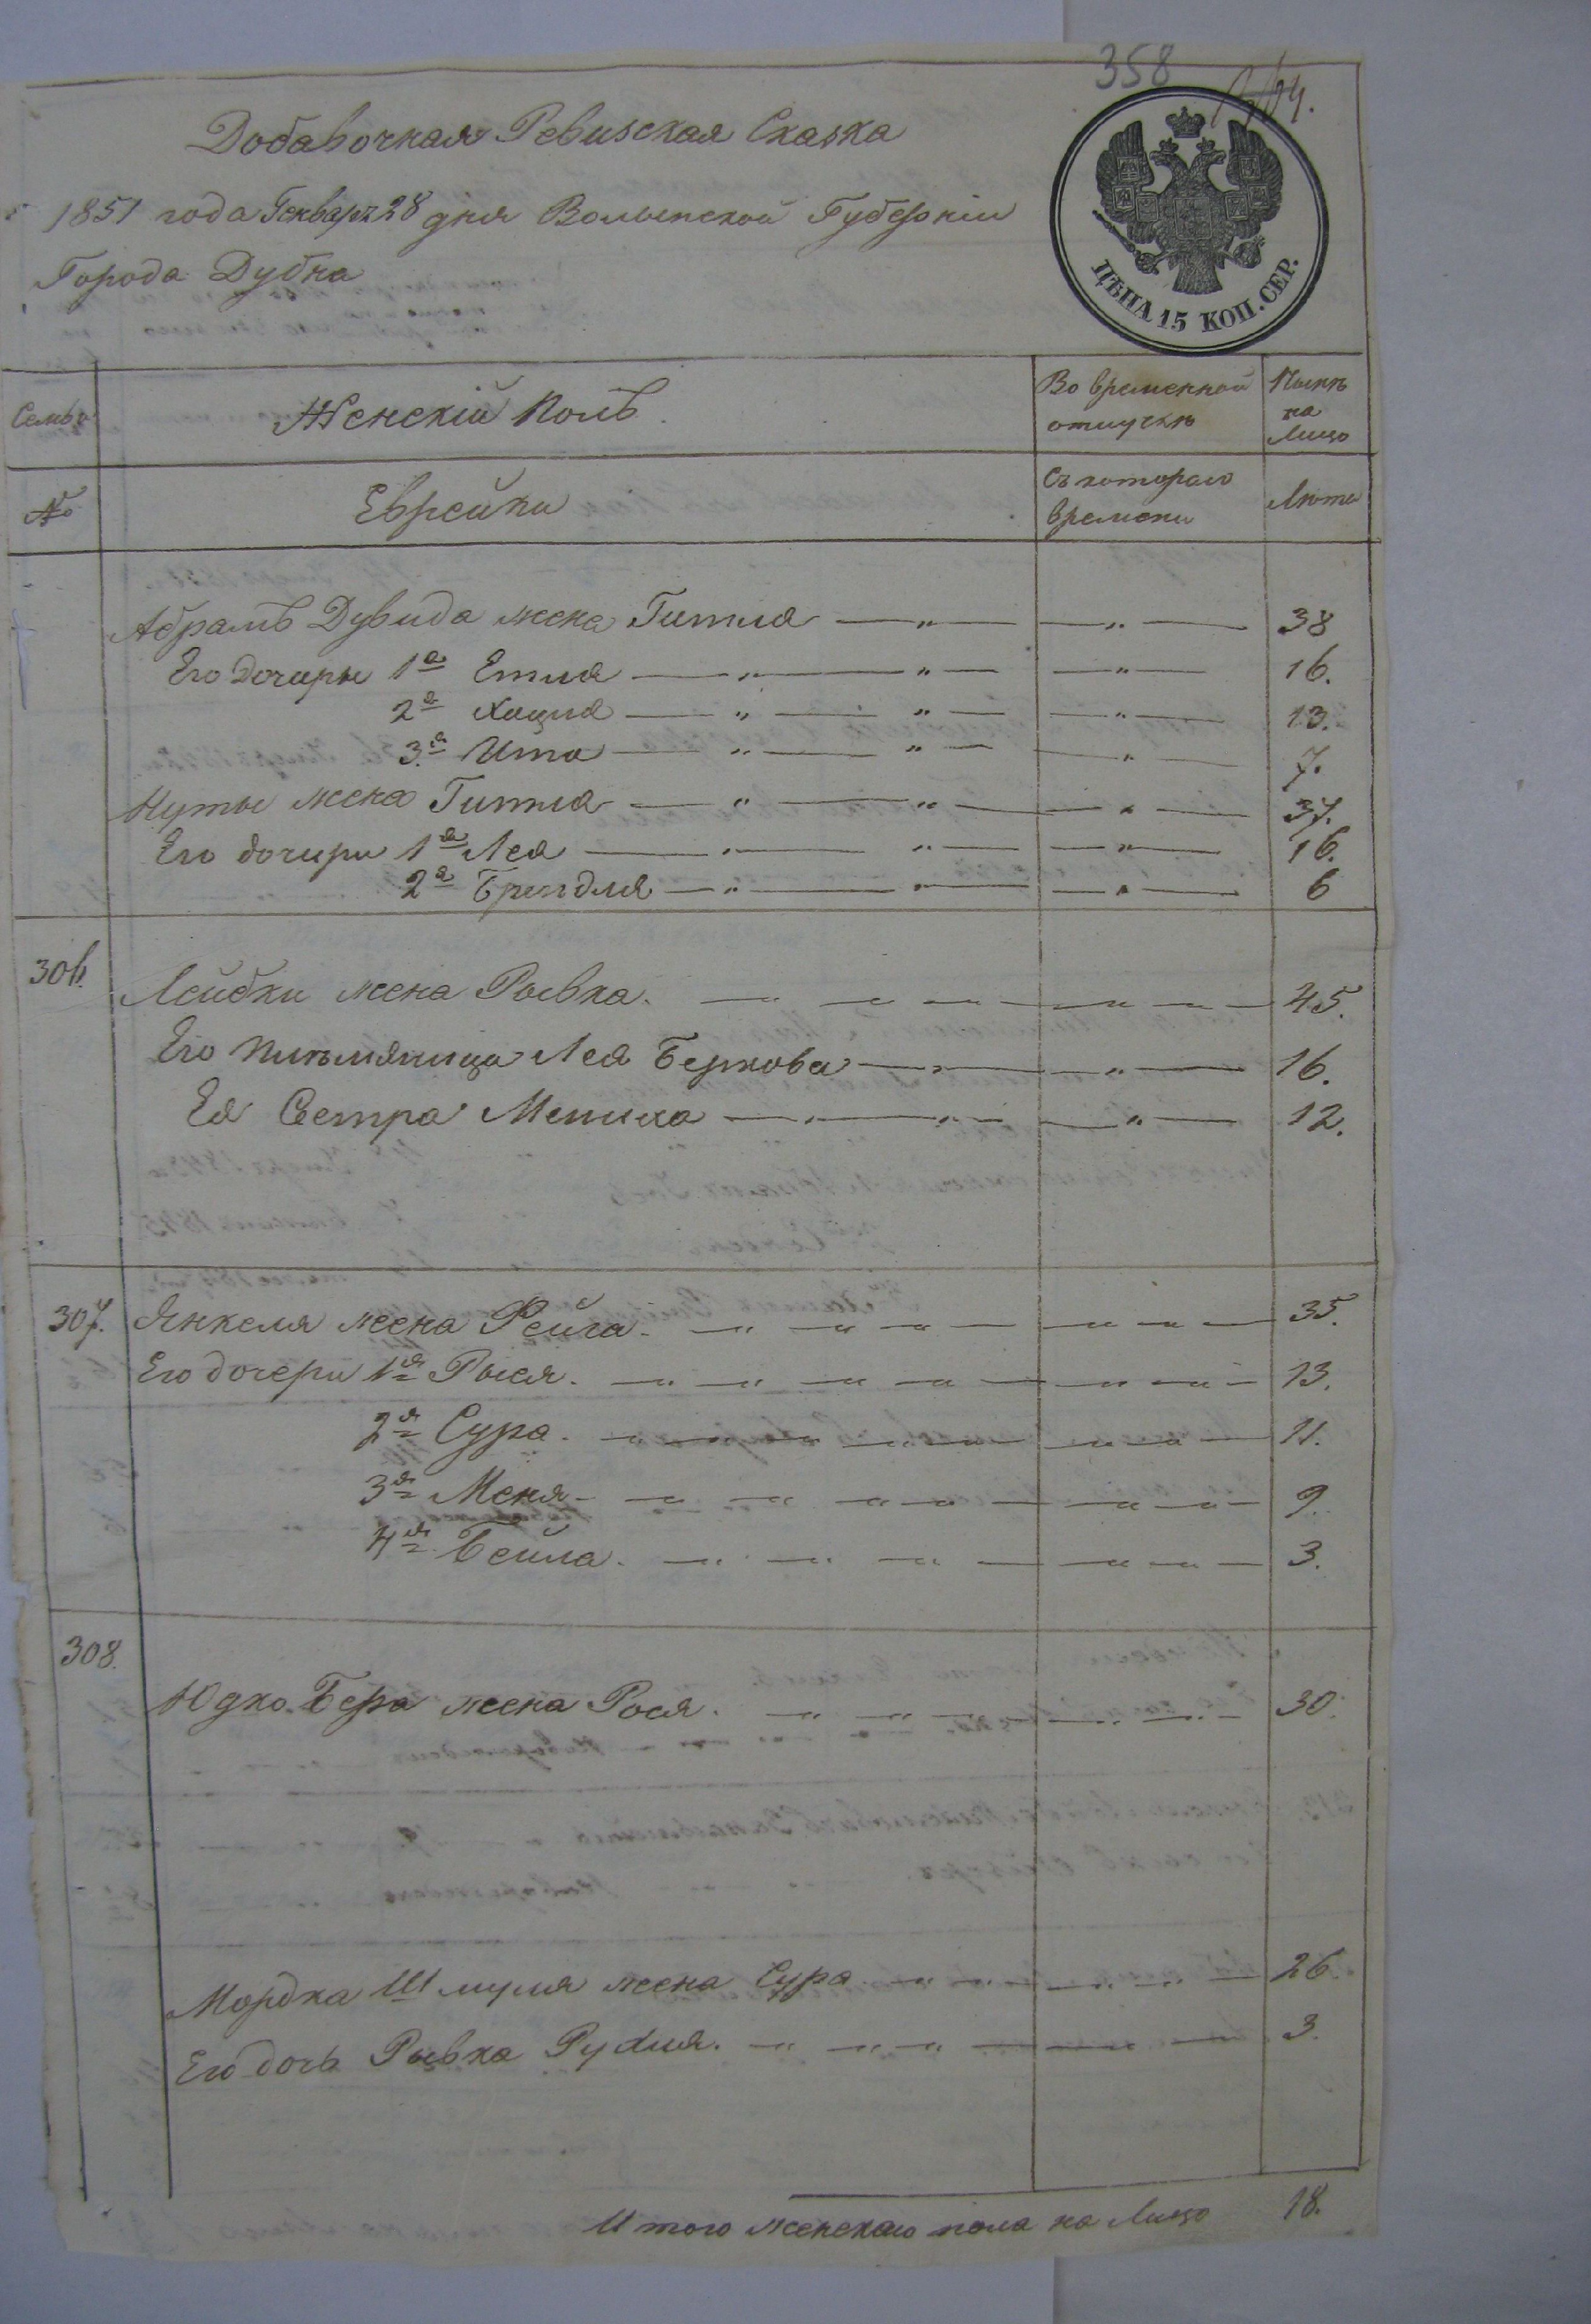 358
Добавочная Ревизская Сказка
1851 года Генваря 28 дня Волынской Губерніи
Города Дубна
ЦѢНА 15 КОП. СЕР.
Семьи Женскій Полъ Во временной отлучкѣ Нынѣ на Лицо
№ Еврейки Съ котораго времени Лѣта
Абрамъ Дувида жена Гитля — " — — " — 38
Его дочиры 1я Етля — " — " — — " — 16.
2я Хацля — " — " — — " — 13.
3я Ита — " — " — — " — 7.
Нуты жена Гитля — " — " — — " — 37.
Его дочири 1я Лея — " — " — — " — 16.
2я Брендля — " — " — — " — 6
306. Лейбки жена Рывка. — " — " — " — " — " — 45.
Его питьмяница Лея Беркова — " — — " — 16.
Ея Сестра Мениха — " — " — — " — 12.
307. Янкеля жена Фейга. — " — " — " — " — " — 35.
Его дочери 1я Рыся. — " — " — " — " — " — 13.
2я Сура. — " — " — " — " — " — 11.
3я Меня — " — " — " — " — " — 9.
4я Бейла. — " — " — " — " — " — 3.
308.
Юдко Бера жена Рося. — " — " — " — " — " — 30.
Мордка Шмуля жена Сура — " — " — " — " — 26.
Его дочь Рывка Рухля. — " — " — " — " — 3.
Итого женскаго пола на Лицо 18.